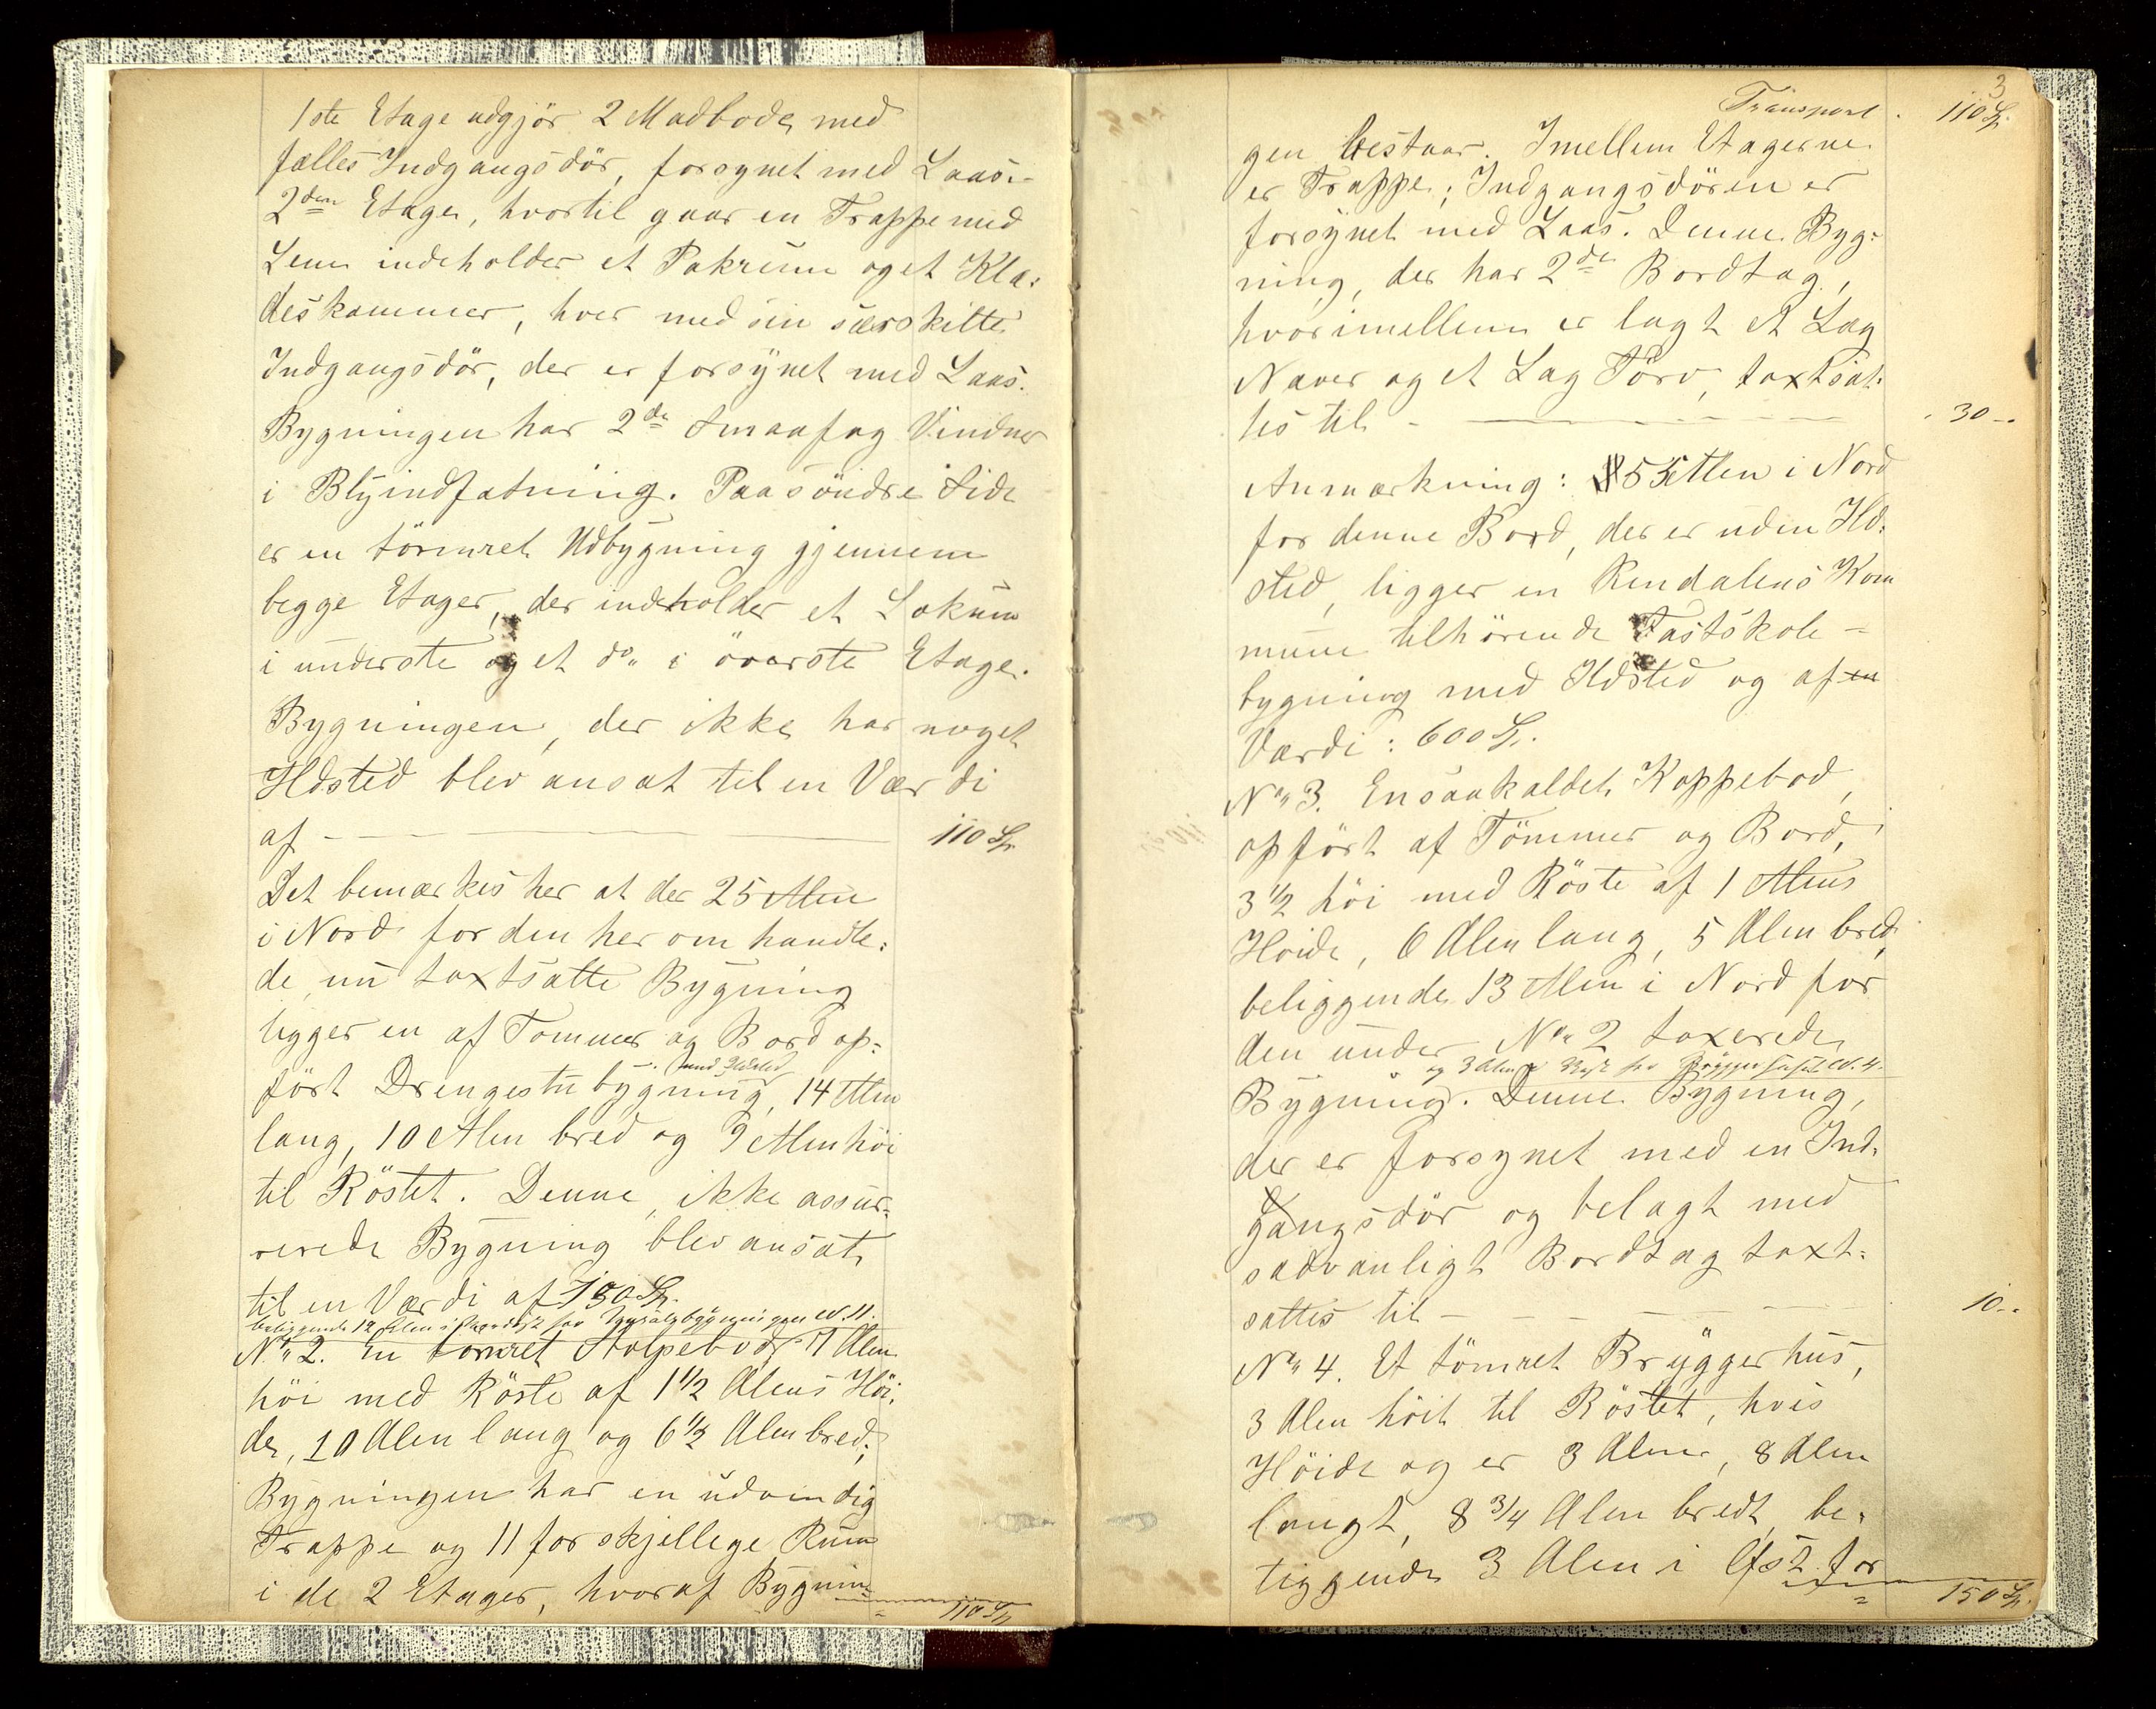 1ste Etage udgjör 2 Madboder med
fælles Indgangsdör, forsynet med Laas.-
2den Etage, hvortil gaar en Trappe med
Lem indeholder et Pakrum og et Klæ-
deskammer, hver med sin særskilte
Indgangsdör, der er forsynet med Laas.
Bygningen har 2de Smaafag Vinduer
i Blyindfatning. Paa söndre Side
er en tömret Udbygning gjennem
begge Etager, der indeholder et Lokum
i underste og et do. i överste Etage.
Bygningen, der ikke har noget
Ildsted blev ansat til en Værdi
af - 110 Sp.
Det bemærkes her at der 25 Alen
i Nord for den her omhandle-
de, nu taxtsatte Bygning
ligger en af Tömmer og Bord op-
med Ildsted
fört Drengestubygning, 14 Alen
lang, 10 Alen bred og 9 Alen höi
til Röstet. Denne, ikke assur-
rerede Bygning blev ansat
til en Værdi af 150 Sp.
beliggende 12 Alen i Nordost for Hovedbygningen N. 11.
No 2. En tömret Stolpebod 7 Alen
höi med Röste af 1 1/2 Alens Höi-
de, 10 Alen lang og 6 1/2 Alen bred;
Bygningen har en udvendig
Trappe og 11 forskjellege Rum
i de 2 Etager, hvoraf Bygnin-
110 Sp.
3
Transport. 110 Sp.
gen bestaar. Imellem Etagerne
er Trappe; Indgangsdören er
forsynet med Laas. Denne Byg-
ning, der har 2de Bordtag,
hvorimellem er lagt et Lag
Næver og et Lag Törv, taxtsat-
tes til - 30 -
Anmærkning: 55 Alen i Nord
for denne Bod, der er uden Ild-
sted, ligger en Rendalens Kom
mune tilhörende Fastskole-
bygning med Ildsted og af en
Værdi: 600 Sp.
No 3. En saakaldet Koppebod,
opfört af Tömmer og Bord,
3 1/2 höi med Röste af 1 Alens
Höide, 6 Alen lang, 5 Alen bred,
beliggende 13 Alen i Nord for
den under No 2 taxerede
og 3 Alen i Vest for Bryggerhuset N. 4.
Bygning. Denne Bygning,
der er forsynet med en Ind-
gangsdör og belagt med
sædvanligt Bordtag taxt-
sattes til - 10 -
No 4. Et tömret Bryggerhus,
3 Alen höit til Röstet, hvis
Höide og er 3 Alen, 8 Alen
langt, 8 3/4 Alen bredt, be-
liggende 3 Alen i Öst for
150 Sp.